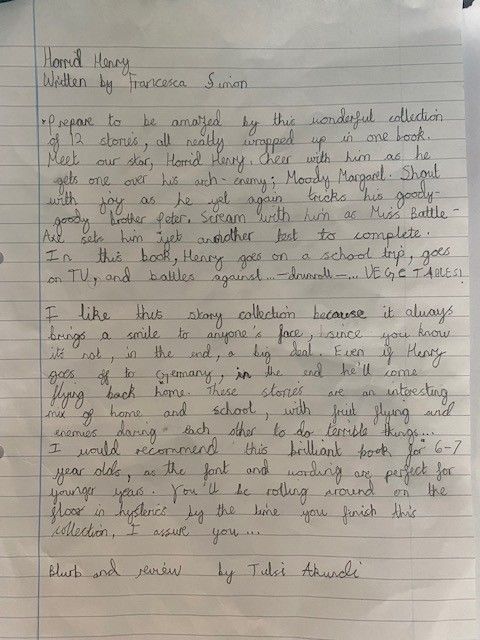 Horrid Henry
Written by Francesca Simon
• Prepare to be amazed by this wonderful collection
of 12 stories, all neatly wrapped up in one book.
Meet our star, Horrid Henry. Cheer with him as he
gets one over his arch-enemy; Moody Margaret. Shout
with joy as he yet again tricks his goody-
goody brother Peter. Scream with him as Miss Battle-
Axe sets him yet another test to complete.
In this book, Henry goes on a school trip, goes
on TV, and battles against...-drumroll-... VEGETABLES!
I like this story collection because it always
brings a smile to anyone's face, since you know
it's not, in the end, a big deal. Even if Henry
goes off to Germany, in the end he'll come
flying back home. These stories are an interesting
mix of home and school, with fruit flying and
enemies daring each other to do terrible things...
I would recommend this brilliant book for 6-7
year olds, as the font and wording are perfect for
younger years. You'll be rolling around on the
floor in hysterics by the time you finish this
collection, I assure you...
Blurb and review by Tulsi Akundi